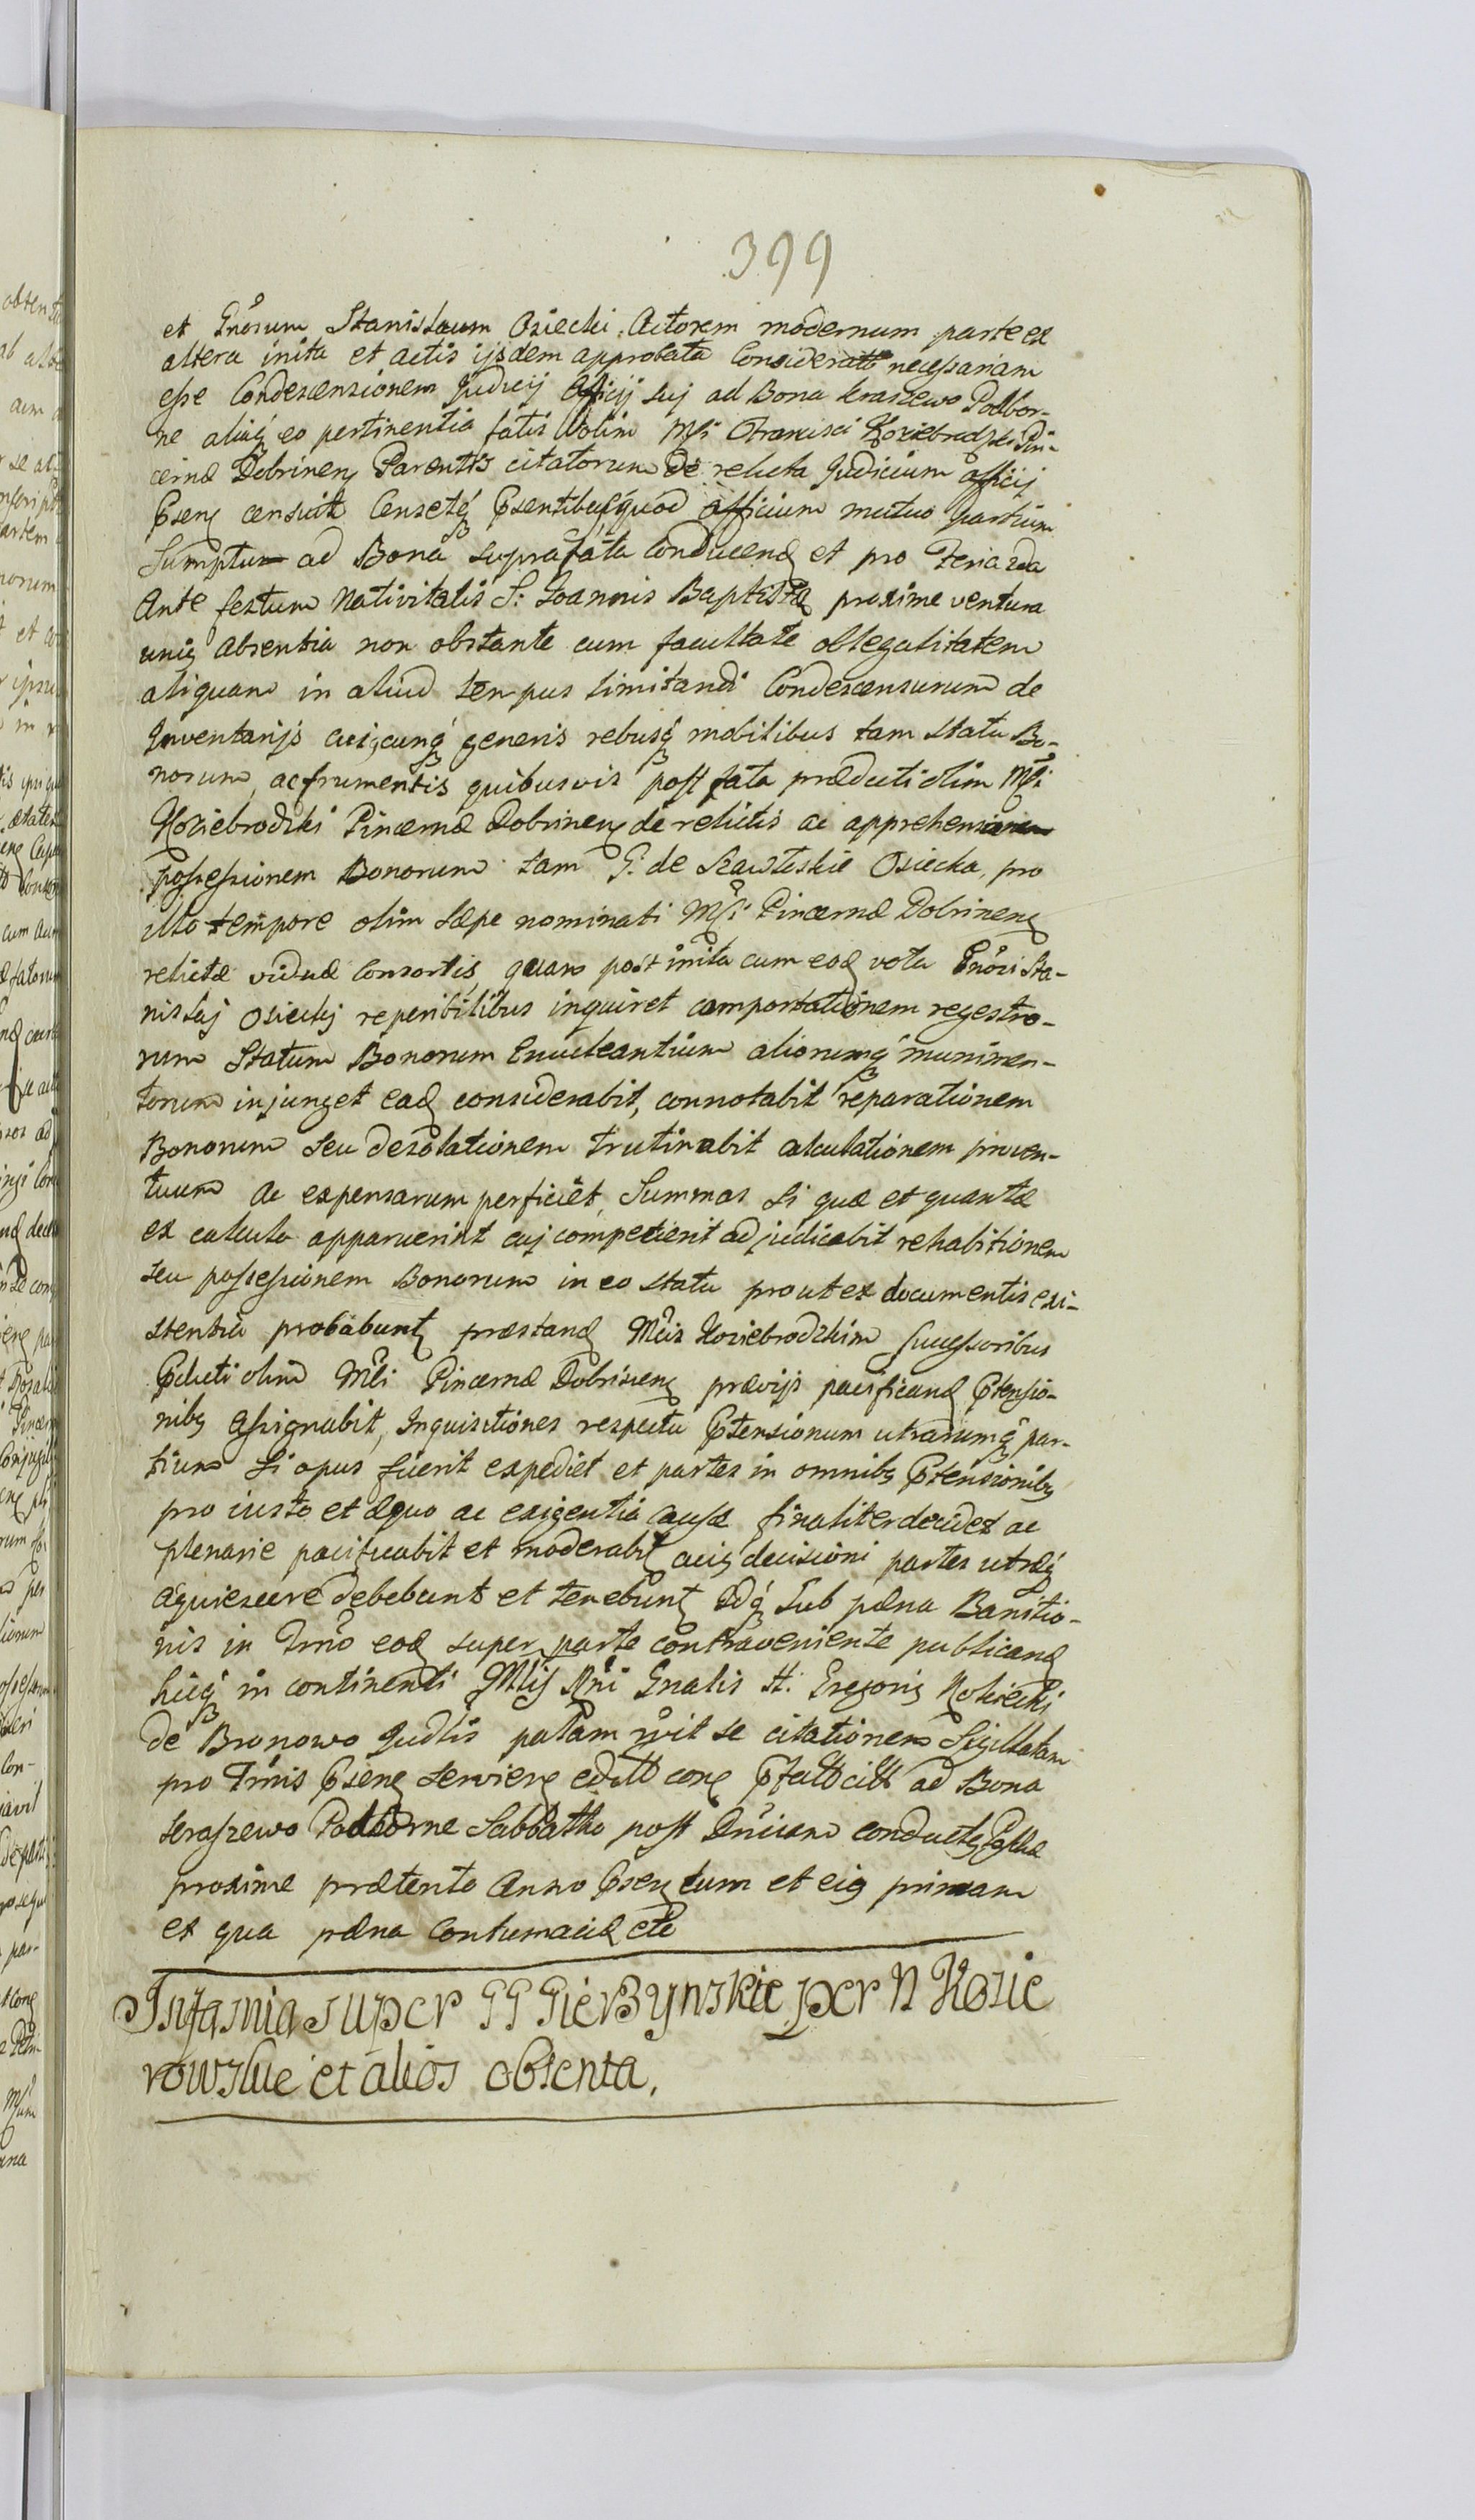 399
et Gnŏrum Stanislaum Osiecki Actorem modernum parte ex
altera inita et actis ijsdem approbata Consideratt necessariam
esse Condescensionem Judicij Officij suj ad Bona kraszewo Podbor-
ne aliaq; eo pertinentia fatis olim Mfi Francisci Koziebrodzki Pin-
cernæ Dobrinen Parentis citatorum de relicta Judicium officij
Psens censuit Censetq; Psentibus quod officium mutuo partium
Sumptum ad Bona suprafata Conducend et pro Feria 2da
Ante festum Nativitatis S: Joannis Baptistæ proxime ventura
unius absentia non obstante cum facultate ob legalitatem
aliquam in aliud tempus limitandi Condescensurum de
Inventarijs cuiuscunq; generis rebusq; mobilibus tam statu Bo-
norum, ac frumentis quibusvis post fata præducti olim Mfi
Koziebrodzki Pincernæ Dobrinen de relictis ac apprehensionem
possessionem Bonorum tam G. de Szawłoskie Osiecka, pro
illo tempore olim sæpe nominati Mfi Pincernæ Dobrinens
relictæ viduæ Consortis, quam post inita cum ead vota Gnŏsi Sta-
nislaj Osieckj reperibilibus inquiret comportationem regestro-
rum Statum Bonorum Enucleantium aliorumq; munimen-
torum injunget ead considerabit, connotabit reparationem
Bonorum seu desolationem trutinabit calculationem proven-
tuum ac expensarum perficiet, Summas si quæ et quantæ
ex calculo apparuerint cuj competierit adjudicabit rehabitionem
seu possessionem Bonorum in eo statu prout ex documentis exi-
stentia probabunt præstand Mcis Koziebrodzkim Successoribus
Pducti olim Mfi Pincernæ Dobrinens prævijs pacificand Ptensio-
nibus assignabit, Inquisitiones respectu Ptensionum utrarumq; par-
tium si opus fuerit expediet et partes in omnibus Ptensionibus
pro iusto et æquo ac exigentia causæ finaliter decidet ac
plenarie pacificabit et moderabit cuius decisioni partes utræq;
aquiescere debebunt et tenebunt Idq; sub pæna Banitio-
nis in Trno eod super parte contraveniente publicand
hicq; in continenti Mlis Rni Gnalis H. Gregorius Rokicki
de Bronowo Judlis palam rvit se citationem Sigillatam
pro Trnis Psens serviens editt cons Pfatt citt ad Bona
kraszewo Podborne Sabbatho post Dnicam conductus Paschæ
proxime præterito Anno Psens tum et eius primam
ex qua pæna Contumaciæ etc
Infamia super GG GierBynskie per N Kozie
rowskie et alios obtenta.